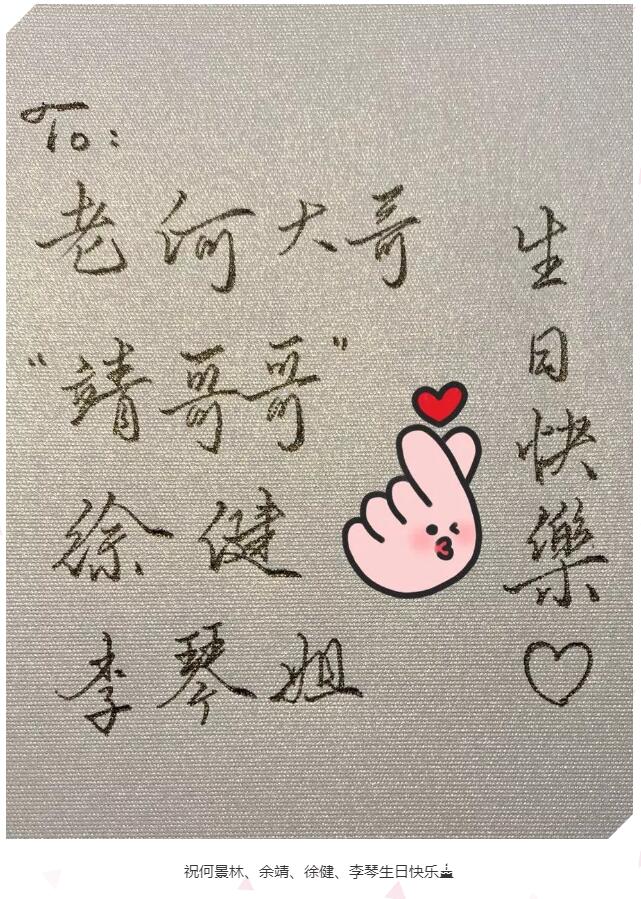 To:
老何大哥
“靖哥哥”
徐健
李琴姐
生日快樂♡
祝何景林、余靖、徐健、李琴生日快乐🎂